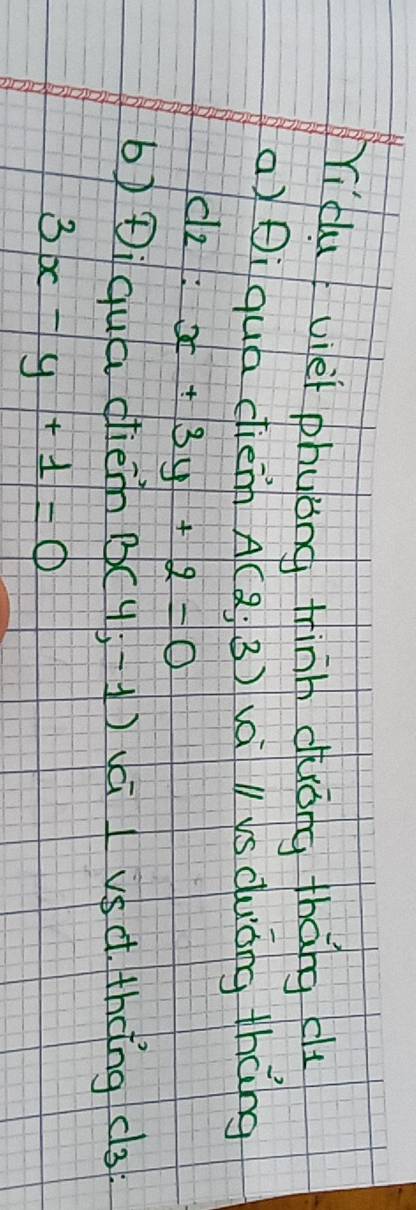 Ví dụ: viết phương trình đường thẳng d1
a) Đi qua điểm A(2; 3) và // vs đường thẳng
d2: x + 3y + 2 = 0
b) Đi qua điểm B(4; -1) và ⊥ vs đ. thẳng d3:
3x - y + 1 = 0